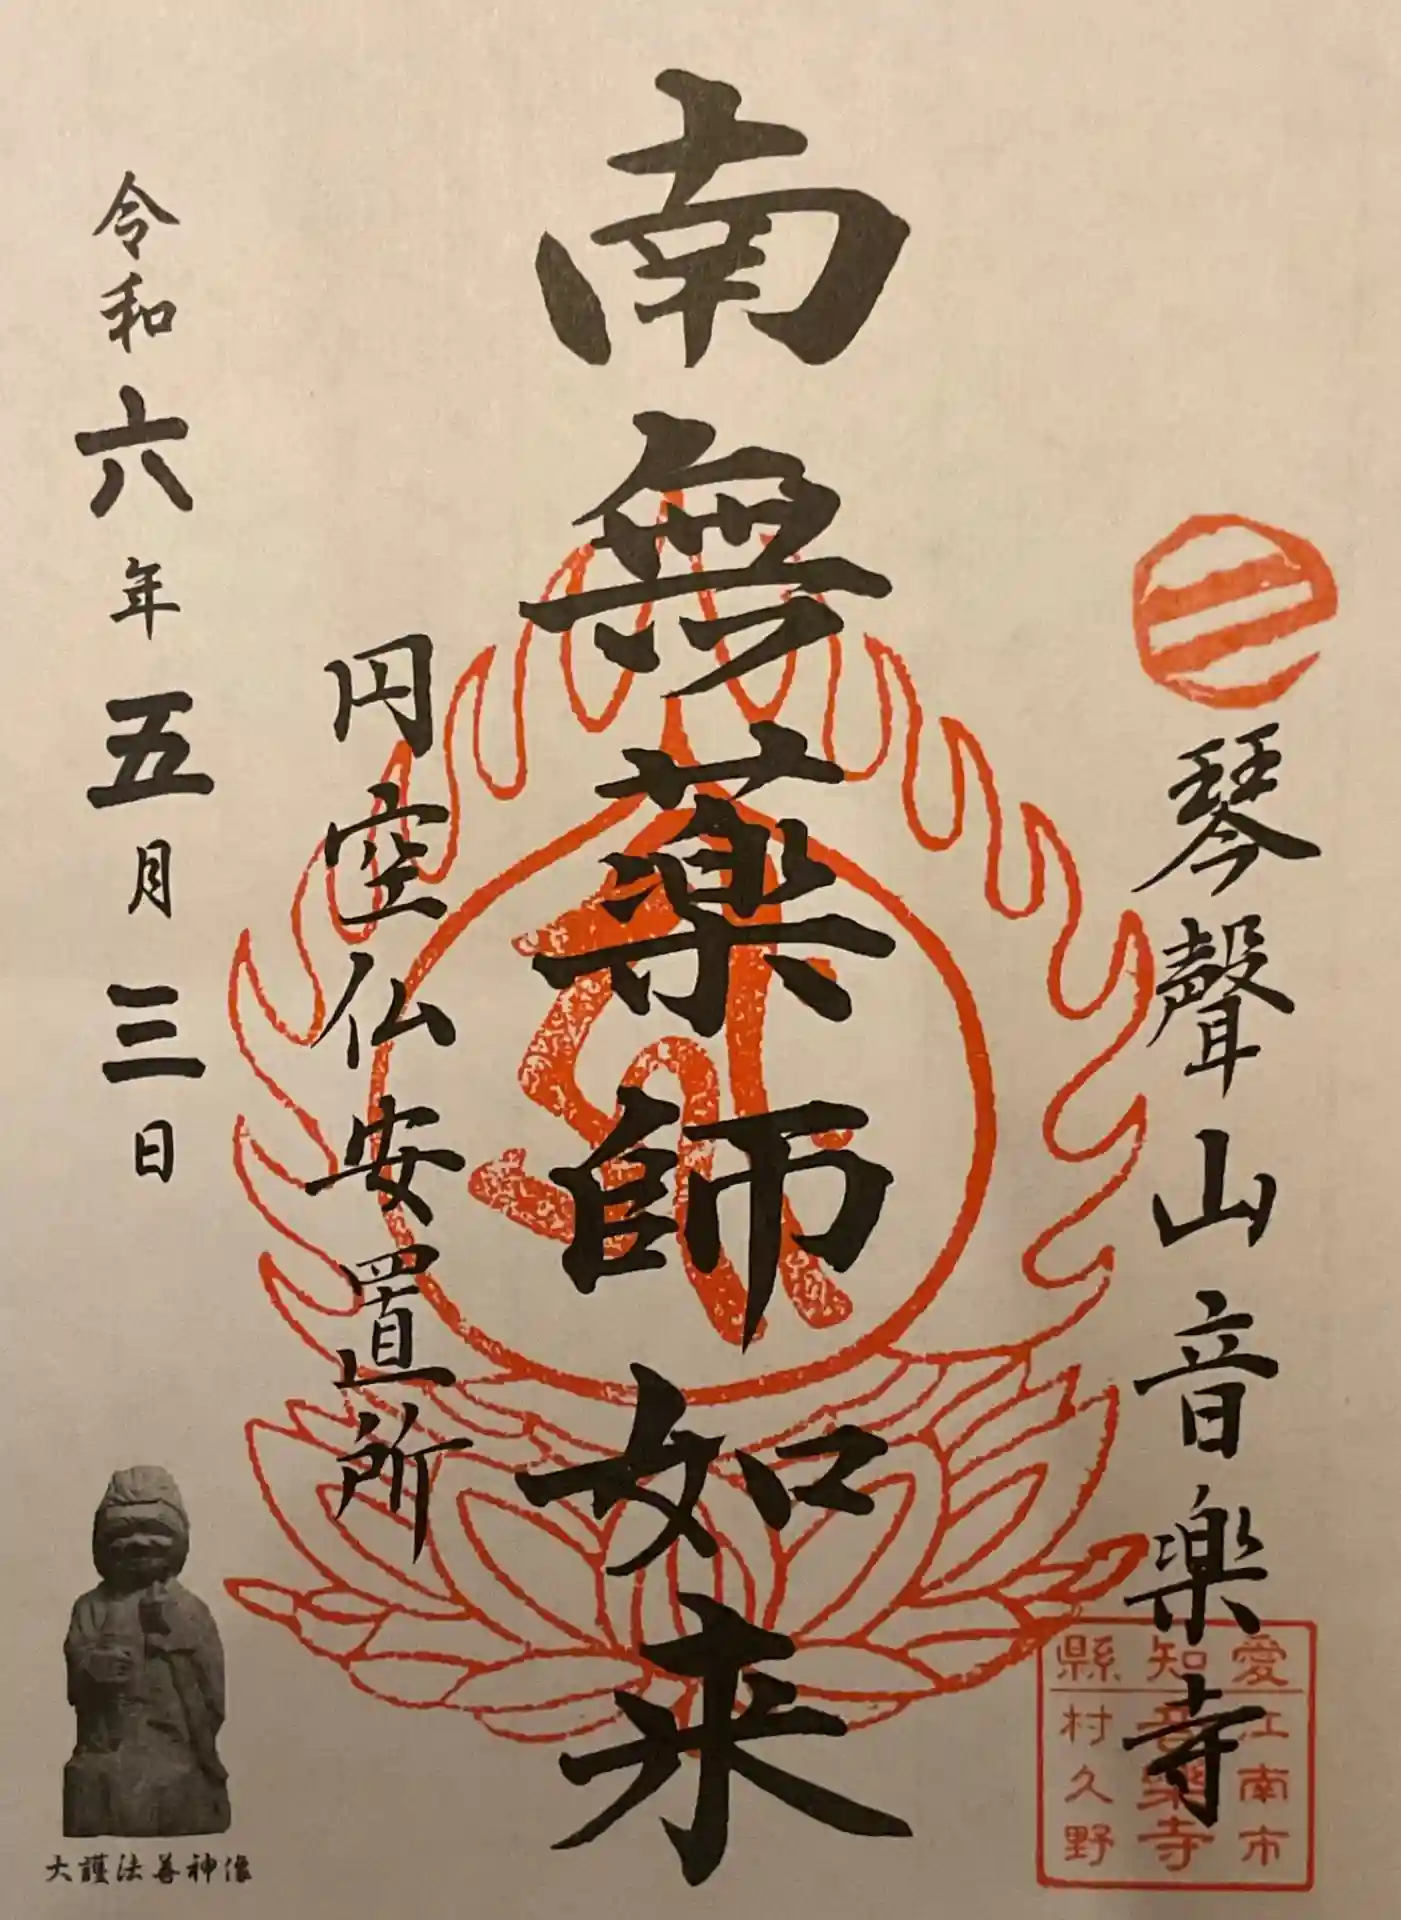 琴聲山音楽寺
愛知縣
江南市
音樂寺
村久野
南無薬師如来
円空仏安置所
令和六年五月三日
大護法善神像